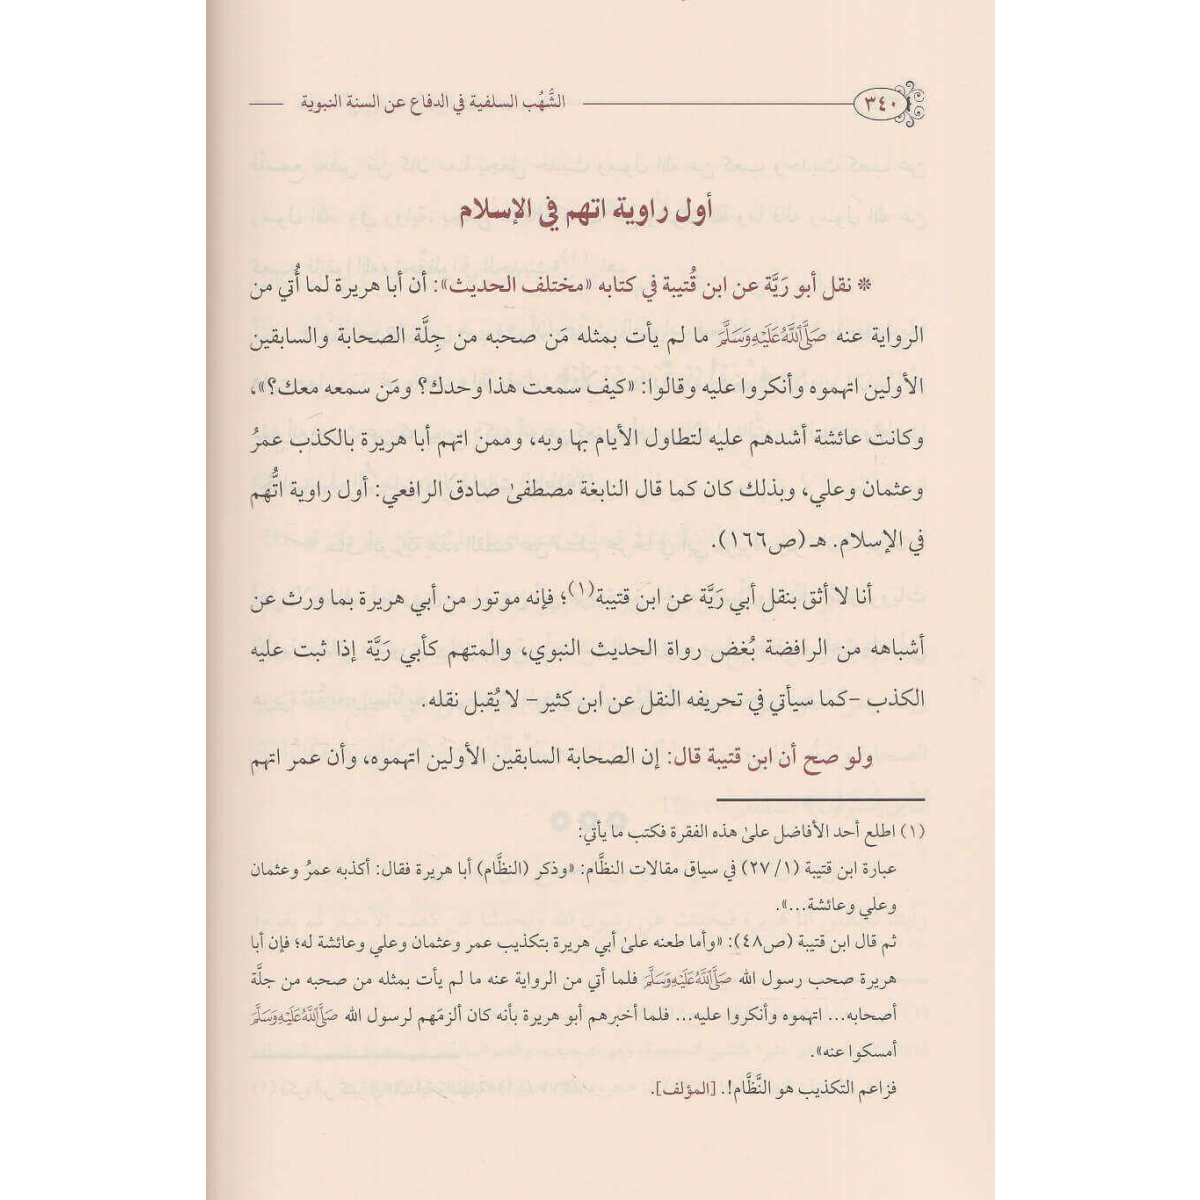 ٣٤٠ الشُّهُب السلفية في الدفاع عن السنة النبوية
أول راوية اتهم في الإسلام
* نقل أبو رَيَّة عن ابن قُتيبة في كتابه «مختلف الحديث»: أن أبا هريرة لما أُتي من
الرواية عنه صَلَّىٰ اللَّهُ عَلَيْهِ وَسَلَّمَ ما لم يأت بمثله مَن صحبه من جِلَّة الصحابة والسابقين
الأولين اتهموه وأنكروا عليه وقالوا: «كيف سمعت هذا وحدك؟ ومَن سمعه معك؟»،
وكانت عائشة أشدهم عليه لتطاول الأيام بها وبه، وممن اتهم أبا هريرة بالكذب عمرُ
وعثمان وعلي، وبذلك كان كما قال النابغة مصطفىٰ صادق الرافعي: أول راوية اتُّهم
في الإسلام. هـ (ص١٦٦).
أنا لا أثق بنقل أبي رَيَّة عن ابن قتيبة(١)؛ فإنه موتور من أبي هريرة بما ورث عن
أشباهه من الرافضة بُغض رواة الحديث النبوي، والمتهم كأبي رَيَّة إذا ثبت عليه
الكذب -كما سيأتي في تحريفه النقل عن ابن كثير- لا يُقبل نقله.
ولو صح أن ابن قتيبة قال: إن الصحابة السابقين الأولين اتهموه، وأن عمر اتهم
(١) اطلع أحد الأفاضل علىٰ هذه الفقرة فكتب ما يأتي:
عبارة ابن قتيبة (١/ ٢٧) في سياق مقالات النظَّام: «وذكر (النظَّام) أبا هريرة فقال: أكذبه عمرُ وعثمان
وعلي وعائشة...».
ثم قال ابن قتيبة (ص٤٨): «وأما طعنه علىٰ أبي هريرة بتكذيب عمر وعثمان وعلي وعائشة له؛ فإن أبا
هريرة صحب رسول الله صَلَّىٰ اللَّهُ عَلَيْهِ وَسَلَّمَ فلما أتي من الرواية عنه ما لم يأت بمثله من صحبه من جلَّة
أصحابه... اتهموه وأنكروا عليه... فلما أخبرهم أبو هريرة بأنه كان ألزمَهم لرسول الله صَلَّىٰ اللَّهُ عَلَيْهِ وَسَلَّمَ
أمسكوا عنه».
فزاعم التكذيب هو النَّظَّام!. [المؤلف].